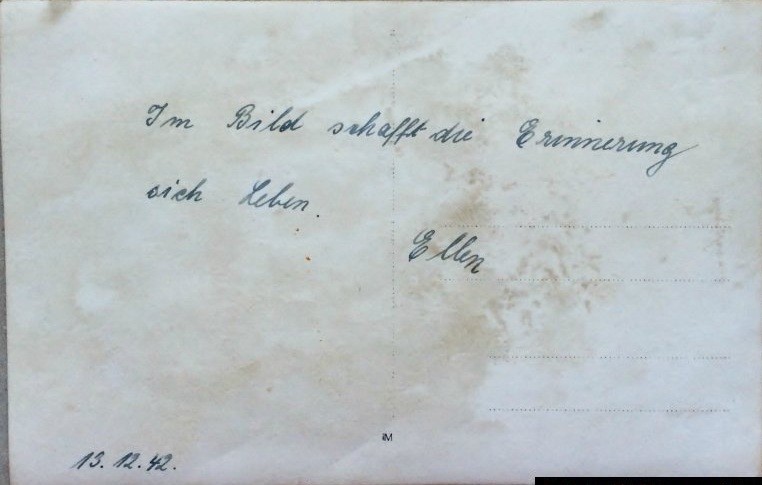 Im Bild schafft die Erinnerung
sich Leben.
Ellen
iM
13.12.42.